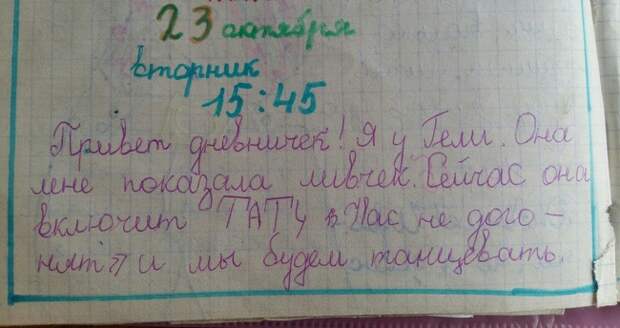 23 октября
вторник
15:45
Привет дневничек! Я у Гели. Она
мне показала ливчек. Сейчас она
включит ТАТУ "Нас не дого-
нят" и мы будем танцевать.